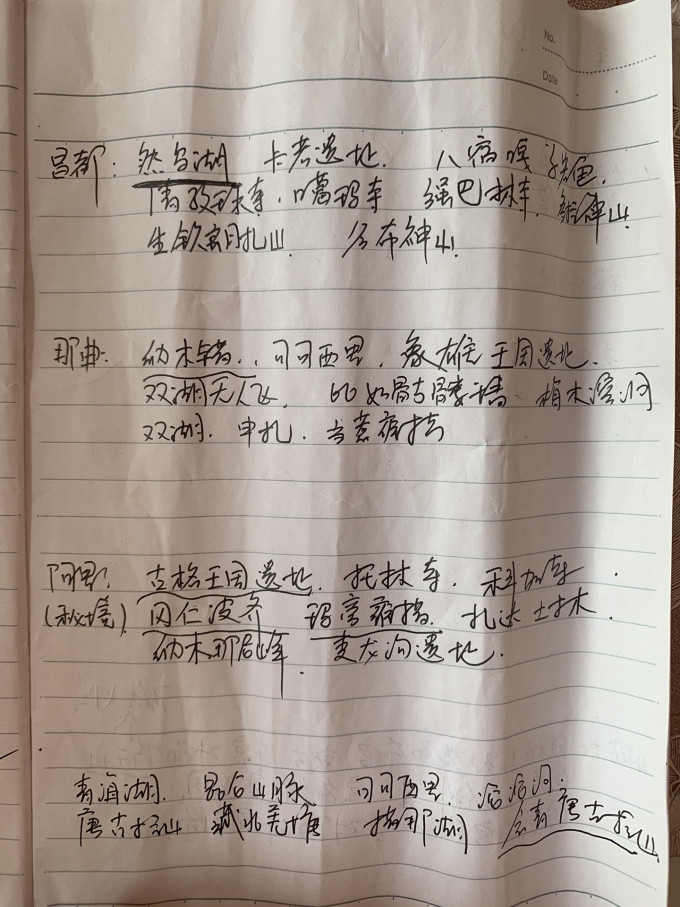 No.
Date
昌都: 然乌湖 卡若遗址. 八宿嘎
寺. 噶玛寺 强巴林寺. 神山
生钦朗扎山. 神山.
那曲: 纳木错. 可可西里. 象雄王国遗址.
双湖无人区. 比如骷髅墙
双湖. 申扎. 当惹雍错
阿里: 古格王国遗址. 托林寺. 科加寺.
(秘境) 冈仁波齐 玛旁雍错. 扎达土林.
纳木那尼峰. 遗址.
青海湖. 昆仑山脉 可可西里. 沱沱河.
唐古拉山 藏北羌塘 措那湖 唐古拉山